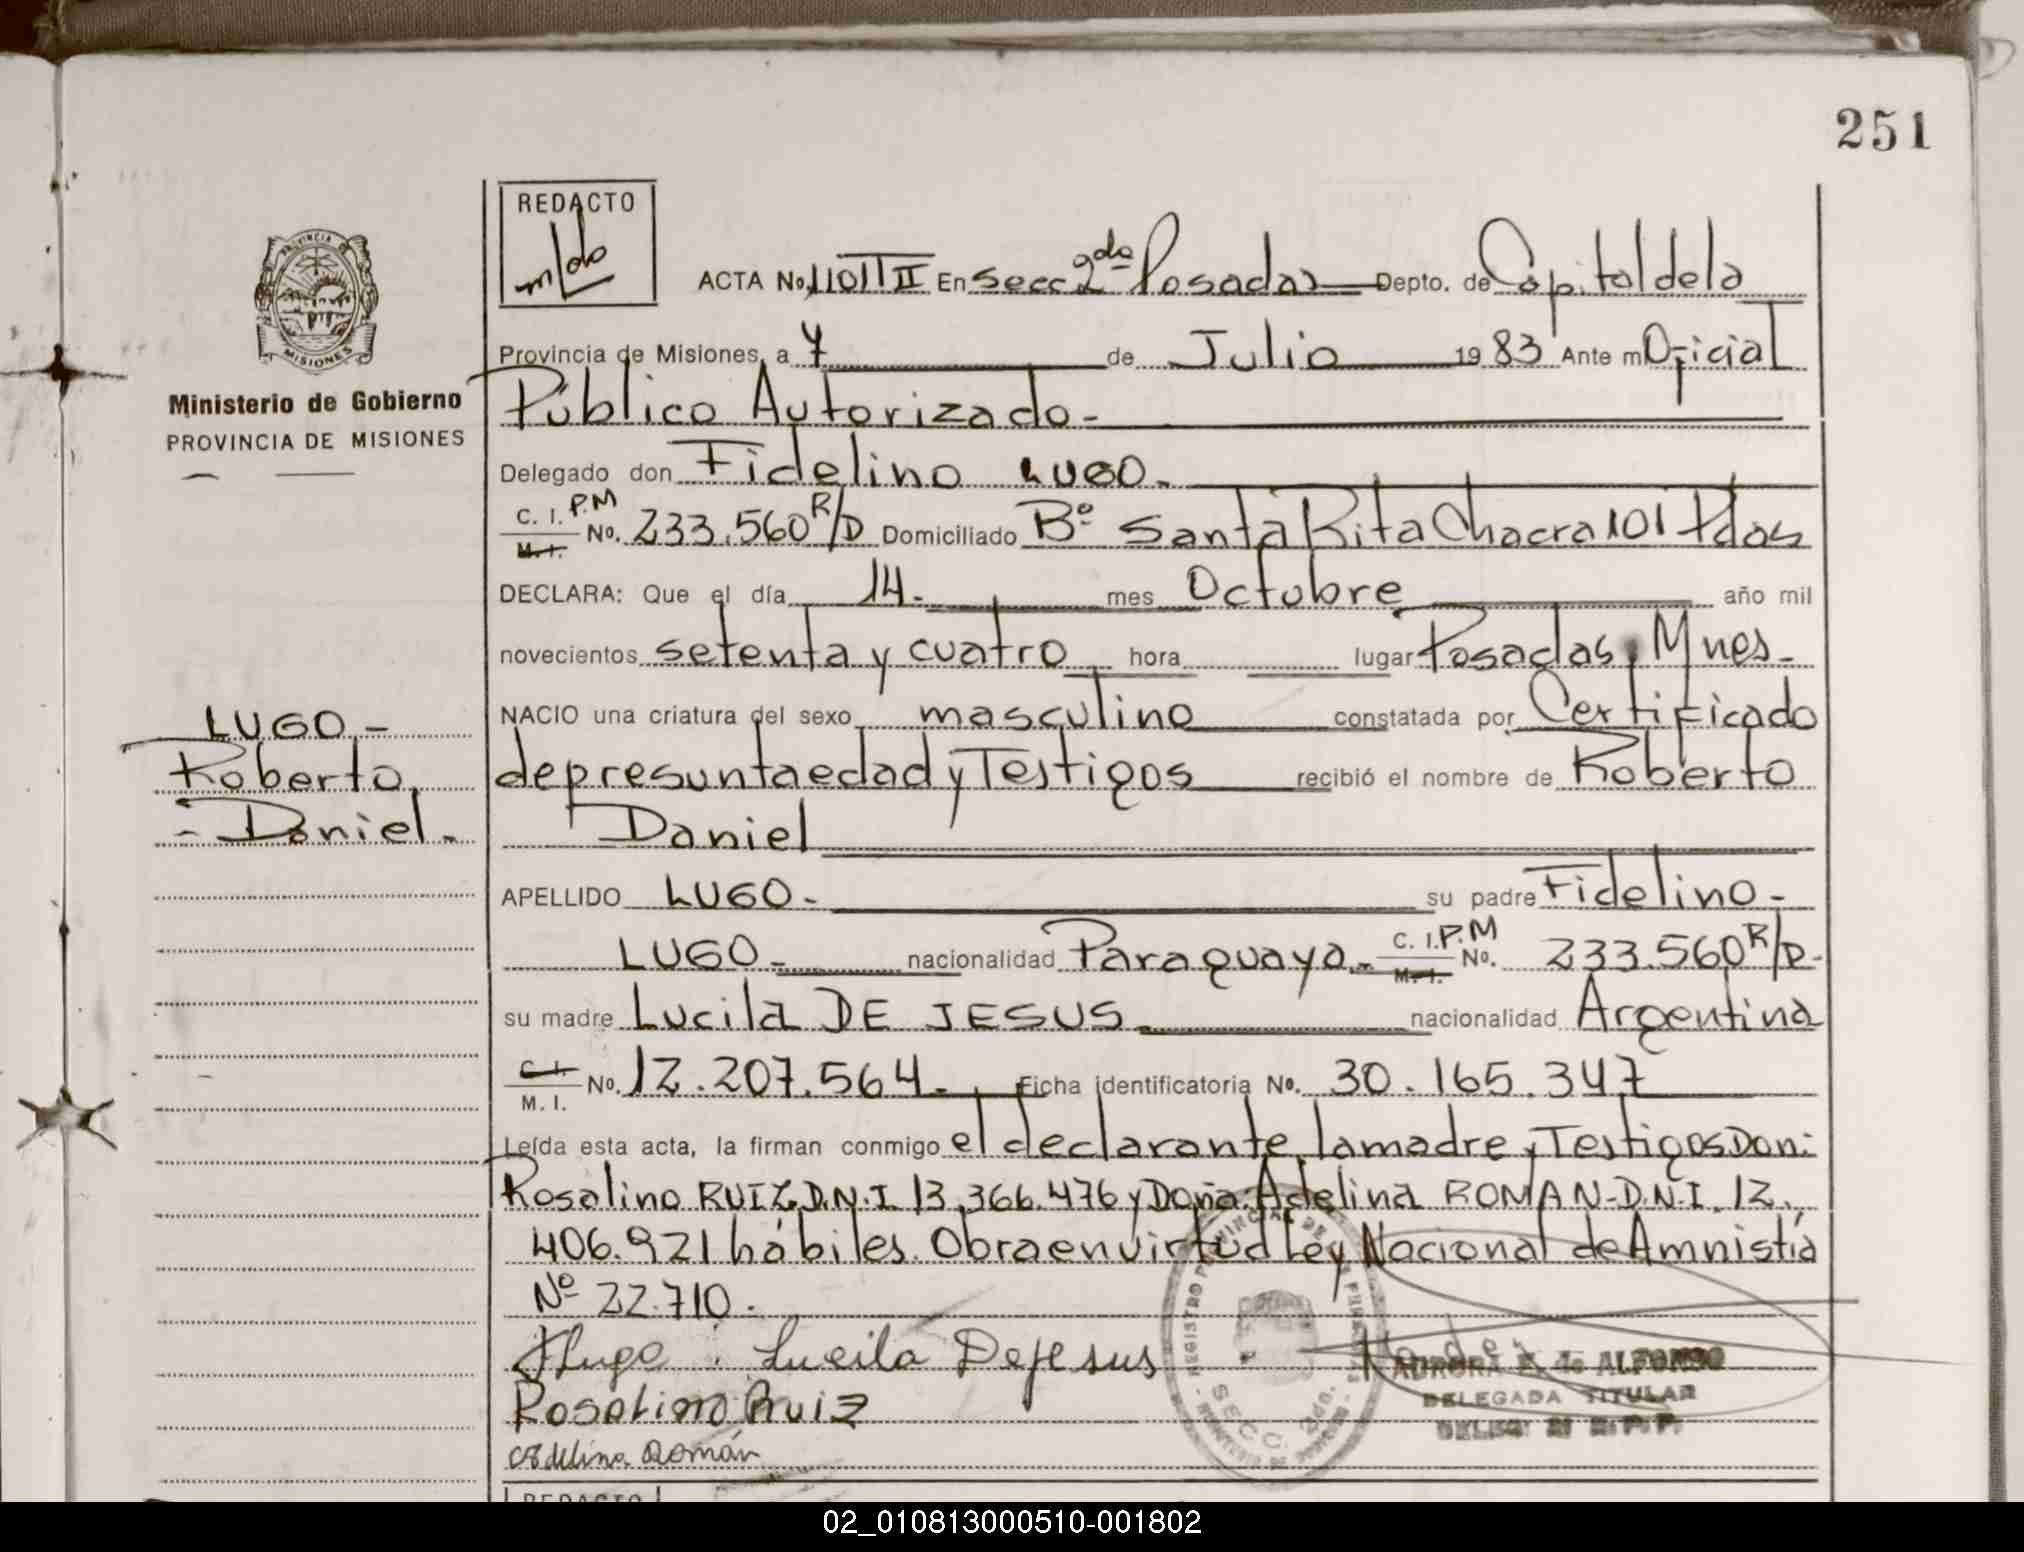 251
REDACTO
ACTA No. 1101 T II En Secc 2da Posadas Depto. de Capital de la
Provincia de Misiones, a 7 de Julio 1983 Ante mi Oficial
Ministerio de Gobierno
PROVINCIA DE MISIONES
Público Autorizado-
Delegado don Fidelino LUGO.
C. I. P.M
M. I. No. 233.560 R/D Domiciliado Bº Santa Rita Chacra 101 Pdas
DECLARA: Que el día 14. mes Octubre año mil
novecientos setenta y cuatro hora lugar Posadas, Mnes-
NACIO una criatura del sexo masculino constatada por Certificado
LUGO-
Roberto
- Daniel.
de presunta edad y Testigos recibió el nombre de Roberto
Daniel
APELLIDO LUGO- su padre Fidelino-
LUGO- nacionalidad Paraguaya- C. I. P.M M. I. No. 233.560 R/D-
su madre Lucila DE JESUS nacionalidad Argentina
C. I.
M. I. No. 12.207.564. Ficha identificatoria No. 30.165.347
Leída esta acta, la firman conmigo el declarante, la madre y Testigos Don:
Rosalino RUIZ D.N.I 13.366.476 y Doña: Adelina ROMAN-D.N.I. 12.
406.921 hábiles. Obra en virtud Ley Nacional de Amnistía
Nº 22.710.
Lucila Dejesus
Rosalino Ruiz
Adelina Román
REGISTRO PROVINCIAL DE
SECC. 2da.
AURORA de ALFONSO
DELEGADA TITULAR
REDACTO
02_010813000510-001802